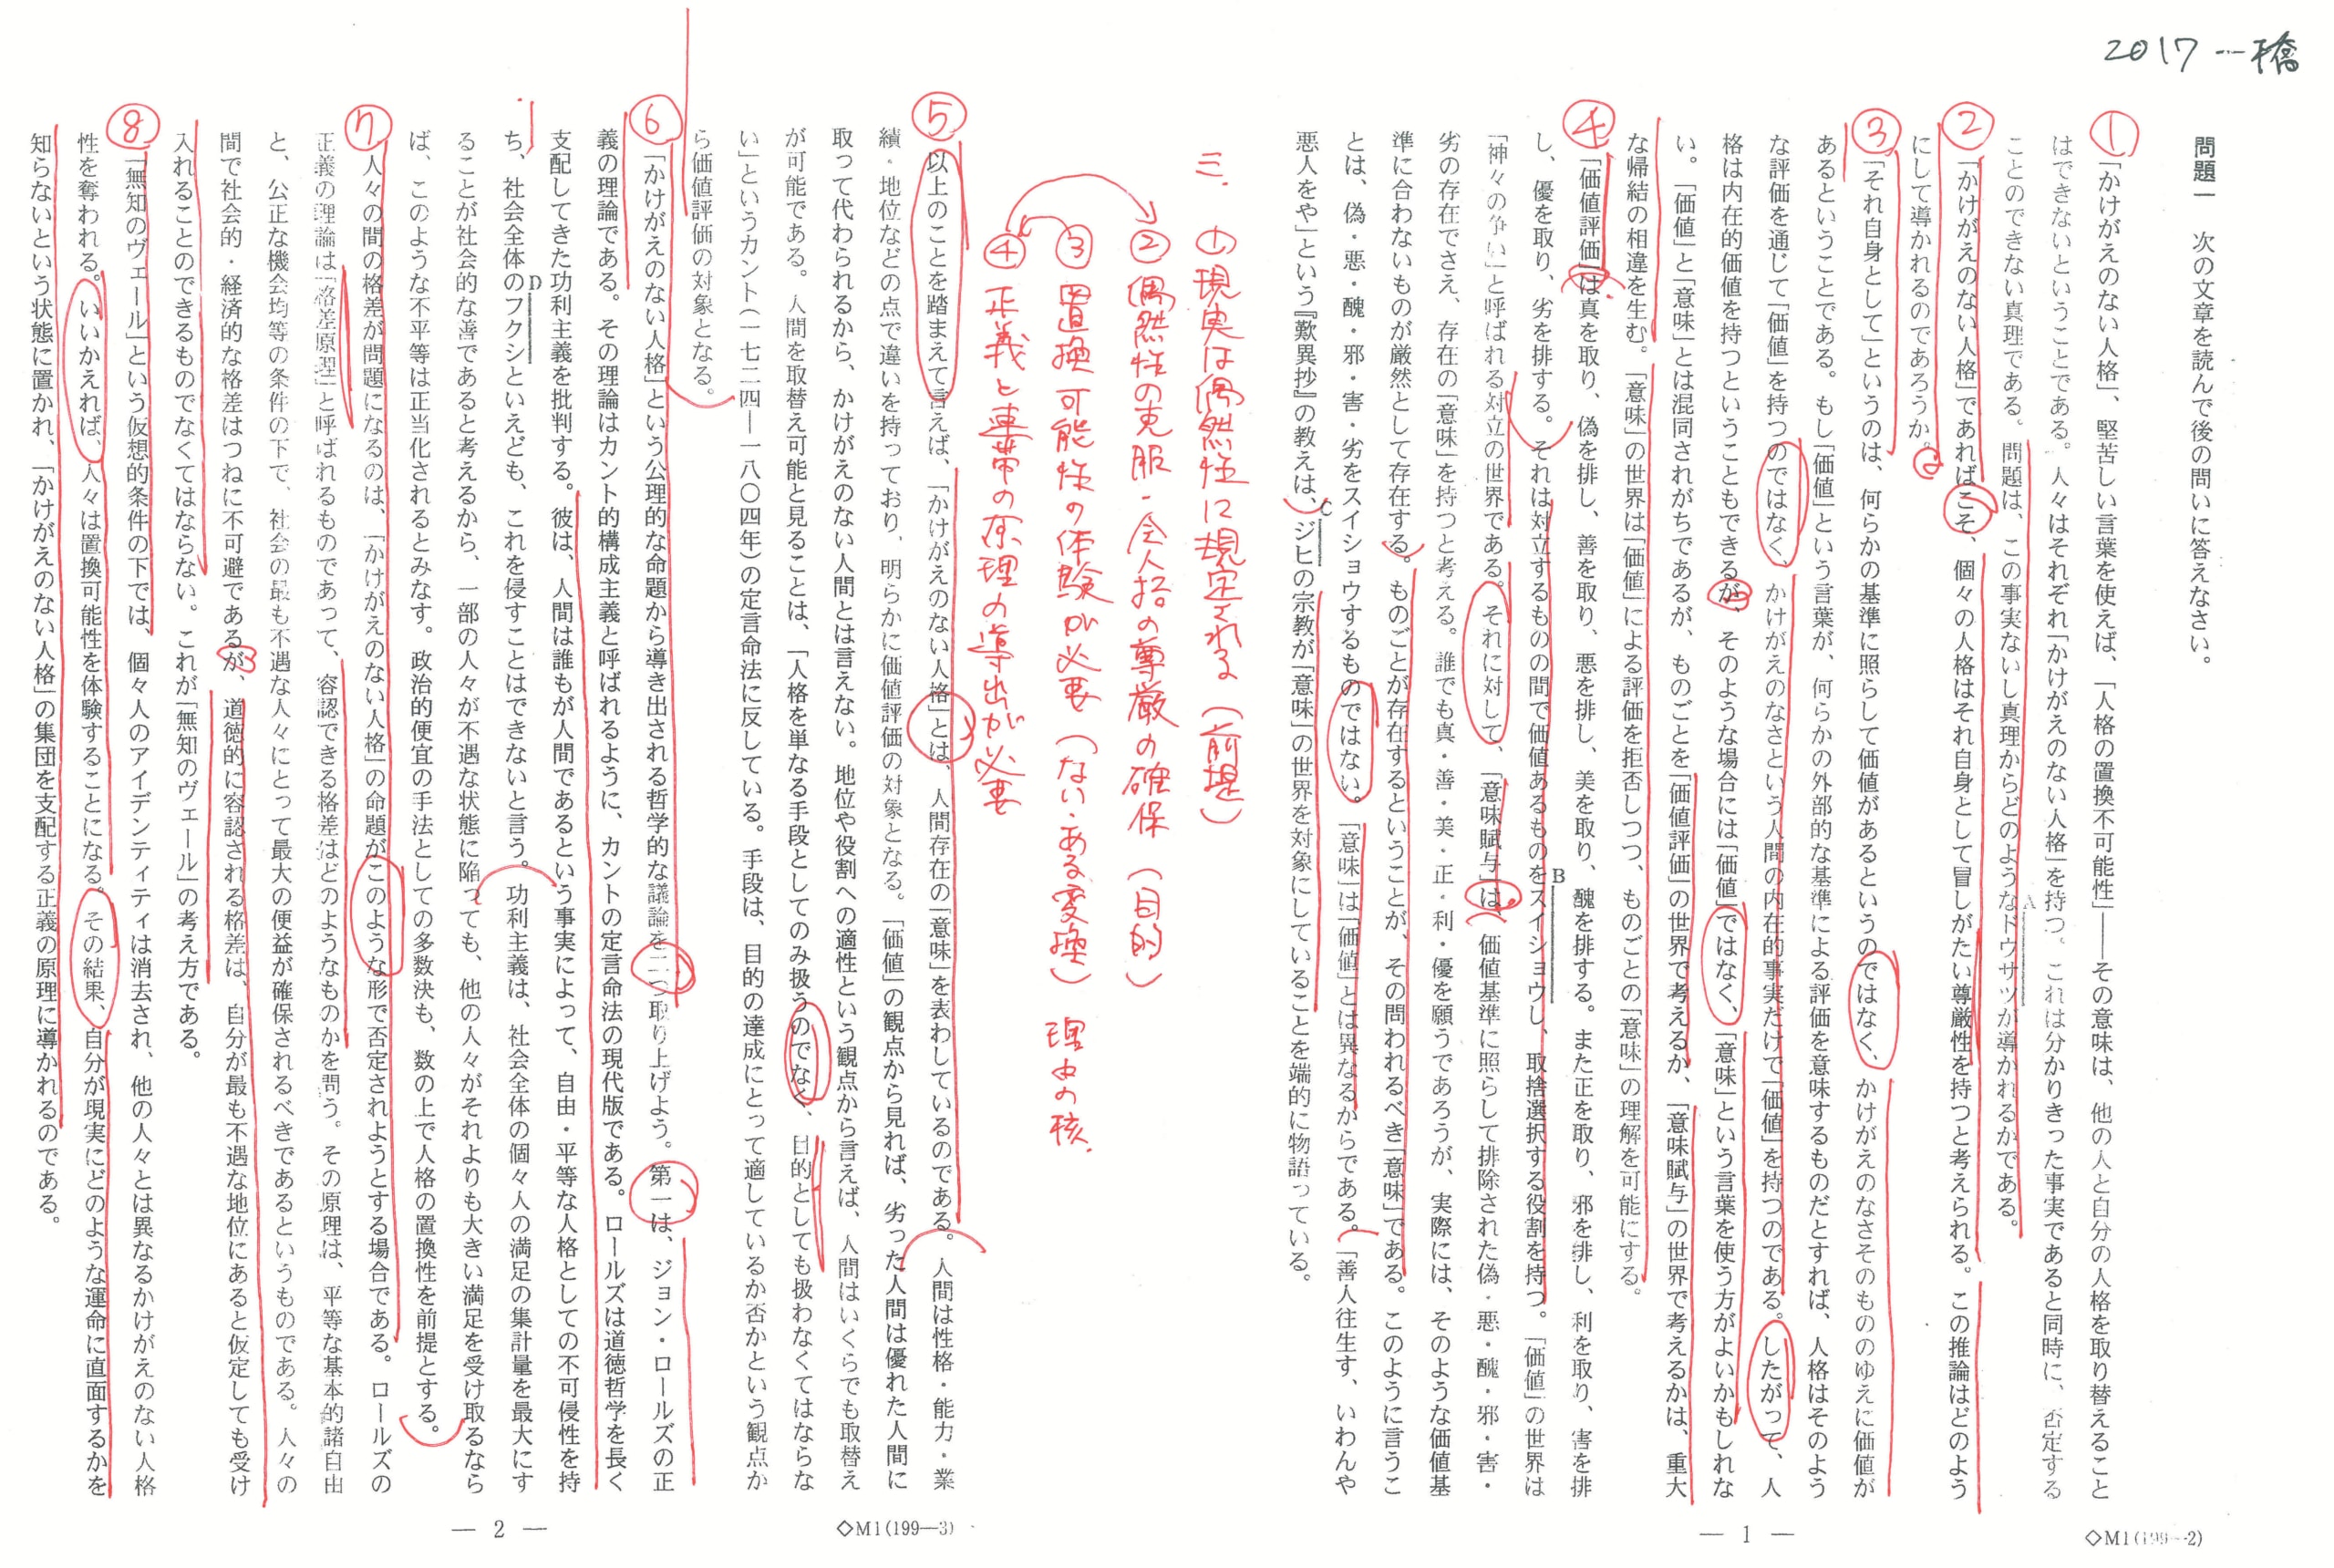 2017 一橋
問題一　次の文章を読んで後の問いに答えなさい。
①「かけがえのない人格」、堅苦しい言葉を使えば、「人格の置換不可能性」――その意味は、他の人と自分の人格を取り替えること
はできないということである。人々はそれぞれ「かけがえのない人格」を持つ。これは分かりきった事実であると同時に、否定する
ことのできない真理である。問題は、この事実ないし真理からどのようなドウサツが導かれるかである。
A
②「かけがえのない人格」であればこそ、個々の人格はそれ自身として冒しがたい尊厳性を持つと考えられる。この推論はどのよう
にして導かれるのであろうか。
③「それ自身として」というのは、何らかの基準に照らして価値があるというのではなく、かけがえのなさそのもののゆえに価値が
あるということである。もし「価値」という言葉が、何らかの外部的な基準による評価を意味するものだとすれば、人格はそのよう
な評価を通じて「価値」を持つのではなく、かけがえのなさという人間の内在的事実だけで「価値」を持つのである。したがって、人
格は内在的価値を持つということもできるが、そのような場合には「価値」ではなく、「意味」という言葉を使う方がよいかもしれな
い。「価値」と「意味」とは混同されがちであるが、ものごとを「価値評価」の世界で考えるか、「意味賦与」の世界で考えるかは、重大
な帰結の相違を生む。「意味」の世界は「価値」による評価を拒否しつつ、ものごとの「意味」の理解を可能にする。
④「価値評価」は真を取り、偽を排し、善を取り、悪を排し、美を取り、醜を排する。また正を取り、邪を排し、利を取り、害を排
し、優を取り、劣を排する。それは対立するものの間で価値あるものをスイショウし、取捨選択する役割を持つ。「価値」の世界は
B
「神々の争い」と呼ばれる対立の世界である。それに対して、「意味賦与」は、価値基準に照らして排除された偽・悪・醜・邪・害・
劣の存在でさえ、存在の「意味」を持つと考える。誰でも真・善・美・正・利・優を願うであろうが、実際には、そのような価値基
準に合わないものが厳然として存在する。ものごとが存在するということが、その問われるべき「意味」である。このように言うこ
とは、偽・悪・醜・邪・害・劣をスイショウするものではない。「意味」は「価値」とは異なるからである。「善人往生す、いわんや
悪人をや」という『歎異抄』の教えは、ジヒの宗教が「意味」の世界を対象にしていることを端的に物語っている。
C
― 1 ―
◇M1(199―2)
三.
①現実は偶然性に規定される（前提）
②偶然性の克服・全人格の尊厳の確保（目的）
③置換可能性の体験が必要（ない・ある変換）理由の核.
④正義と連帯の原理の導出が必要
⑤以上のことを踏まえて言えば、「かけがえのない人格」とは、人間存在の「意味」を表わしているのである。人間は性格・能力・業
績・地位などの点で違いを持っており、明らかに価値評価の対象となる。「価値」の観点から見れば、劣った人間は優れた人間に
取って代わられるから、かけがえのない人間とは言えない。地位や役割への適性という観点から言えば、人間はいくらでも取替え
が可能である。人間を取替え可能と見ることは、「人格を単なる手段としてのみ扱うのでなく、目的としても扱わなくてはならな
い」というカント（一七二四―一八〇四年）の定言命法に反している。手段は、目的の達成にとって適しているか否かという観点か
ら価値評価の対象となる。
⑥「かけがえのない人格」という公理的な命題から導き出される哲学的な議論を二つ取り上げよう。第一は、ジョン・ロールズの正
義の理論である。その理論はカント的構成主義と呼ばれるように、カントの定言命法の現代版である。ロールズは道徳哲学を長く
支配してきた功利主義を批判する。彼は、人間は誰もが人間であるという事実によって、自由・平等な人格としての不可侵性を持
ち、社会全体のフクシといえども、これを侵すことはできないと言う。功利主義は、社会全体の個々人の満足の集計量を最大にす
D
ることが社会的な善であると考えるから、一部の人々が不遇な状態に陥っても、他の人々がそれよりも大きい満足を受け取るなら
ば、このような不平等は正当化されるとみなす。政治的便宜の手法としての多数決も、数の上で人格の置換性を前提とする。
⑦人々の間の格差が問題になるのは、「かけがえのない人格」の命題がこのような形で否定されようとする場合である。ロールズの
正義の理論は「格差原理」と呼ばれるものであって、容認できる格差はどのようなものかを問う。その原理は、平等な基本的諸自由
と、公正な機会均等の条件の下で、社会の最も不遇な人々にとって最大の便益が確保されるべきであるというものである。人々の
間で社会的・経済的な格差はつねに不可避であるが、道徳的に容認される格差は、自分が最も不遇な地位にあると仮定しても受け
入れることのできるものでなくてはならない。これが「無知のヴェール」の考え方である。
⑧「無知のヴェール」という仮想的条件の下では、個々人のアイデンティティは消去され、他の人々とは異なるかけがえのない人格
性を奪われる。いいかえれば、人々は置換可能性を体験することになる。その結果、自分が現実にどのような運命に直面するかを
知らないという状態に置かれ、「かけがえのない人格」の集団を支配する正義の原理に導かれるのである。
― 2 ―
◇M1(199―3)